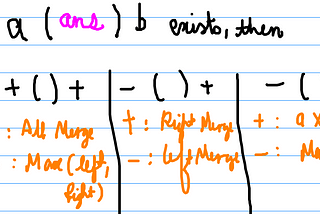 a (ans) b exists, then
+ ( ) + | - ( ) + | - (
: All Merge
: Max(left, right)
+ : Right Merge
- : Left Merge
+ : a
- :